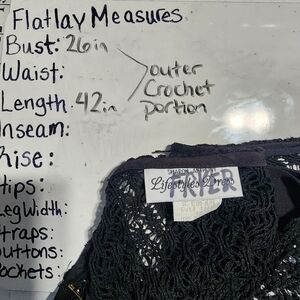 Flatlay Measures
Bust: 26in
Waist:
Length: 42in
outer
Crochet
portion
Inseam:
Rise:
Hips:
Leg Width:
Straps:
Buttons:
Pockets:
Lifestyles Dress
FRYER